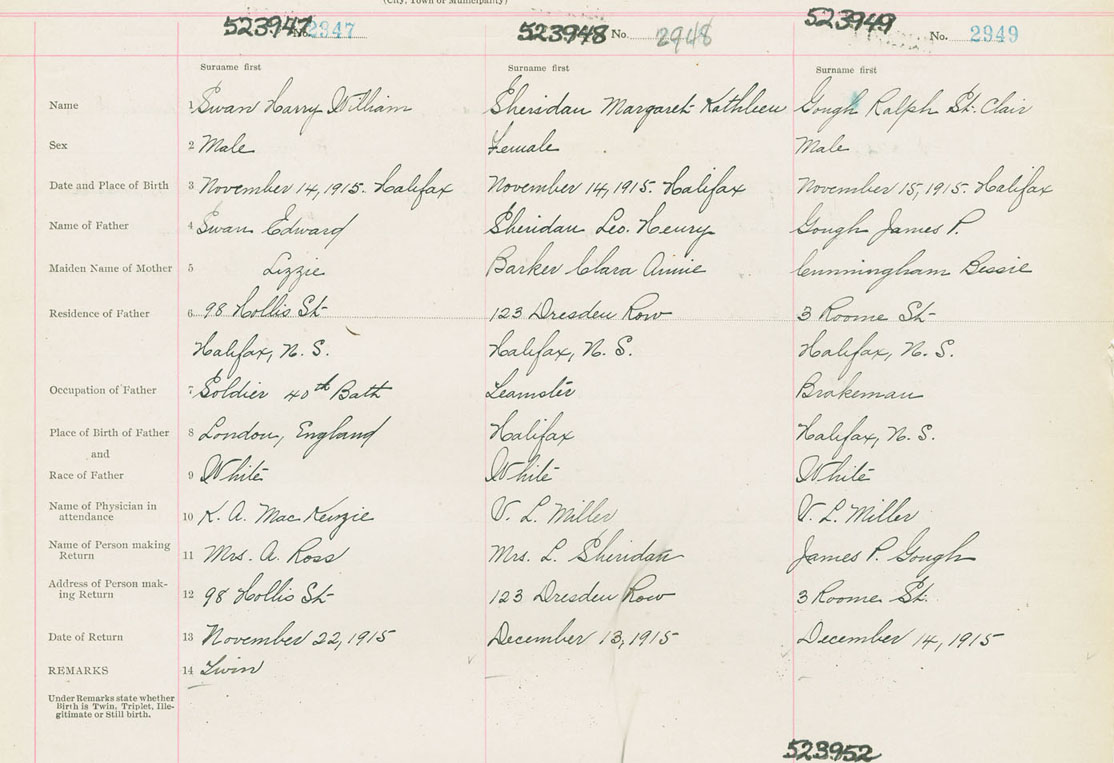 (City, Town or Municipality)
523947 No. 2947 523948 No. 2948 523949 No. 2949
Surname first Surname first Surname first
Name 1 Swan Harry William Sheridan Margaret Kathleen Gough Ralph St. Clair
Sex 2 Male Female Male
Date and Place of Birth 3 November 14, 1915. Halifax November 14, 1915. Halifax November 15, 1915. Halifax
Name of Father 4 Swan Edward Sheridan Leo. Henry Gough James P.
Maiden Name of Mother 5 Lizzie Barker Clara Annie Cunningham Bessie
Residence of Father 6 98 Hollis St 123 Dresden Row 3 Roome St
Halifax, N. S. Halifax, N. S. Halifax, N. S.
Occupation of Father 7 Soldier 40th Batt Teamster Brakeman
Place of Birth of Father 8 London, England Halifax Halifax, N. S.
and
Race of Father 9 White White White
Name of Physician in
attendance 10 K. A. MacKenzie V. L. Miller V. L. Miller
Name of Person making
Return 11 Mrs. A. Ross Mrs. L. Sheridan James P. Gough
Address of Person mak-
ing Return 12 98 Hollis St 123 Dresden Row 3 Roome St.
Date of Return 13 November 22, 1915 December 13, 1915 December 14, 1915
REMARKS 14 Twin
Under Remarks state whether
Birth is Twin, Triplet, Ille-
gitimate or Still birth.
523952